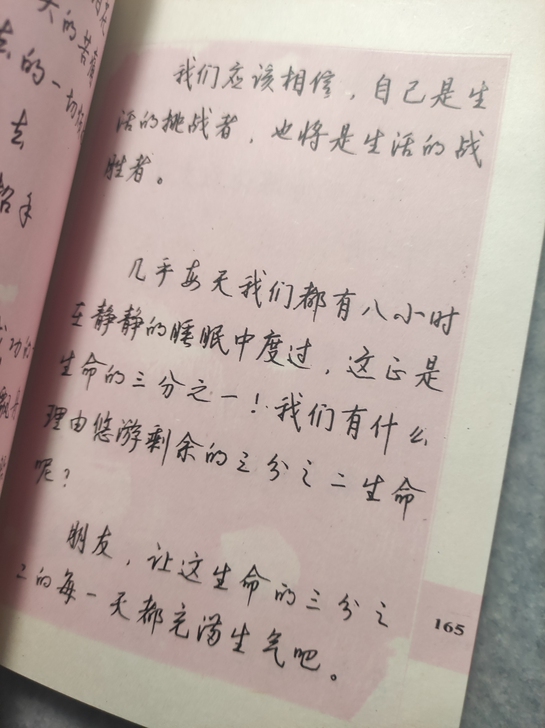 天的苦
去的一切
去
招手
我们应该相信，自己是生
活的挑战者，也将是生活的战
胜者。
几乎每天我们都有八小时
在静静的睡眠中度过，这正是
生命的三分之一！我们有什么
理由悠游剩余的三分之二生命
呢？
朋友，让这生命的三分之
二的每一天都充满生气吧。
165